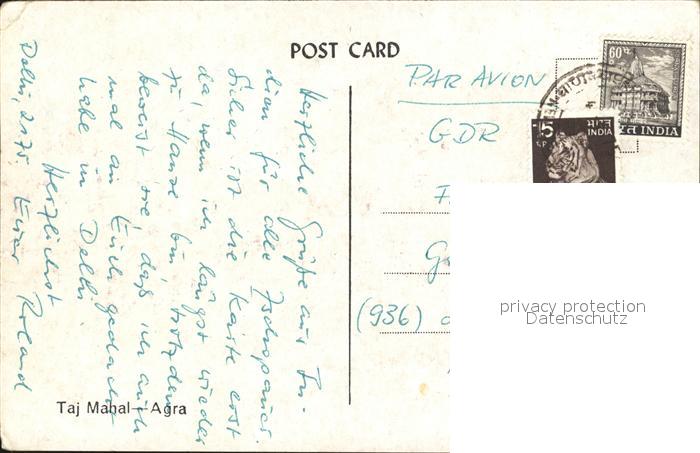 POST CARD
PAR AVION
GDR
(936)
60
भारत INDIA
5
भारत
INDIA
Herzliche Grüße aus In-
dien für alle
Sicher ist die Karte erst
da, wenn ich längst wieder
zu Hause bin, trotzdem
beweist sie, daß ich auch
mal an Euch gedacht
habe in Delhi
Herzlichst
Delhi, 2.1.75 Euer Roland
Taj Mahal - Agra
privacy protection
Datenschutz